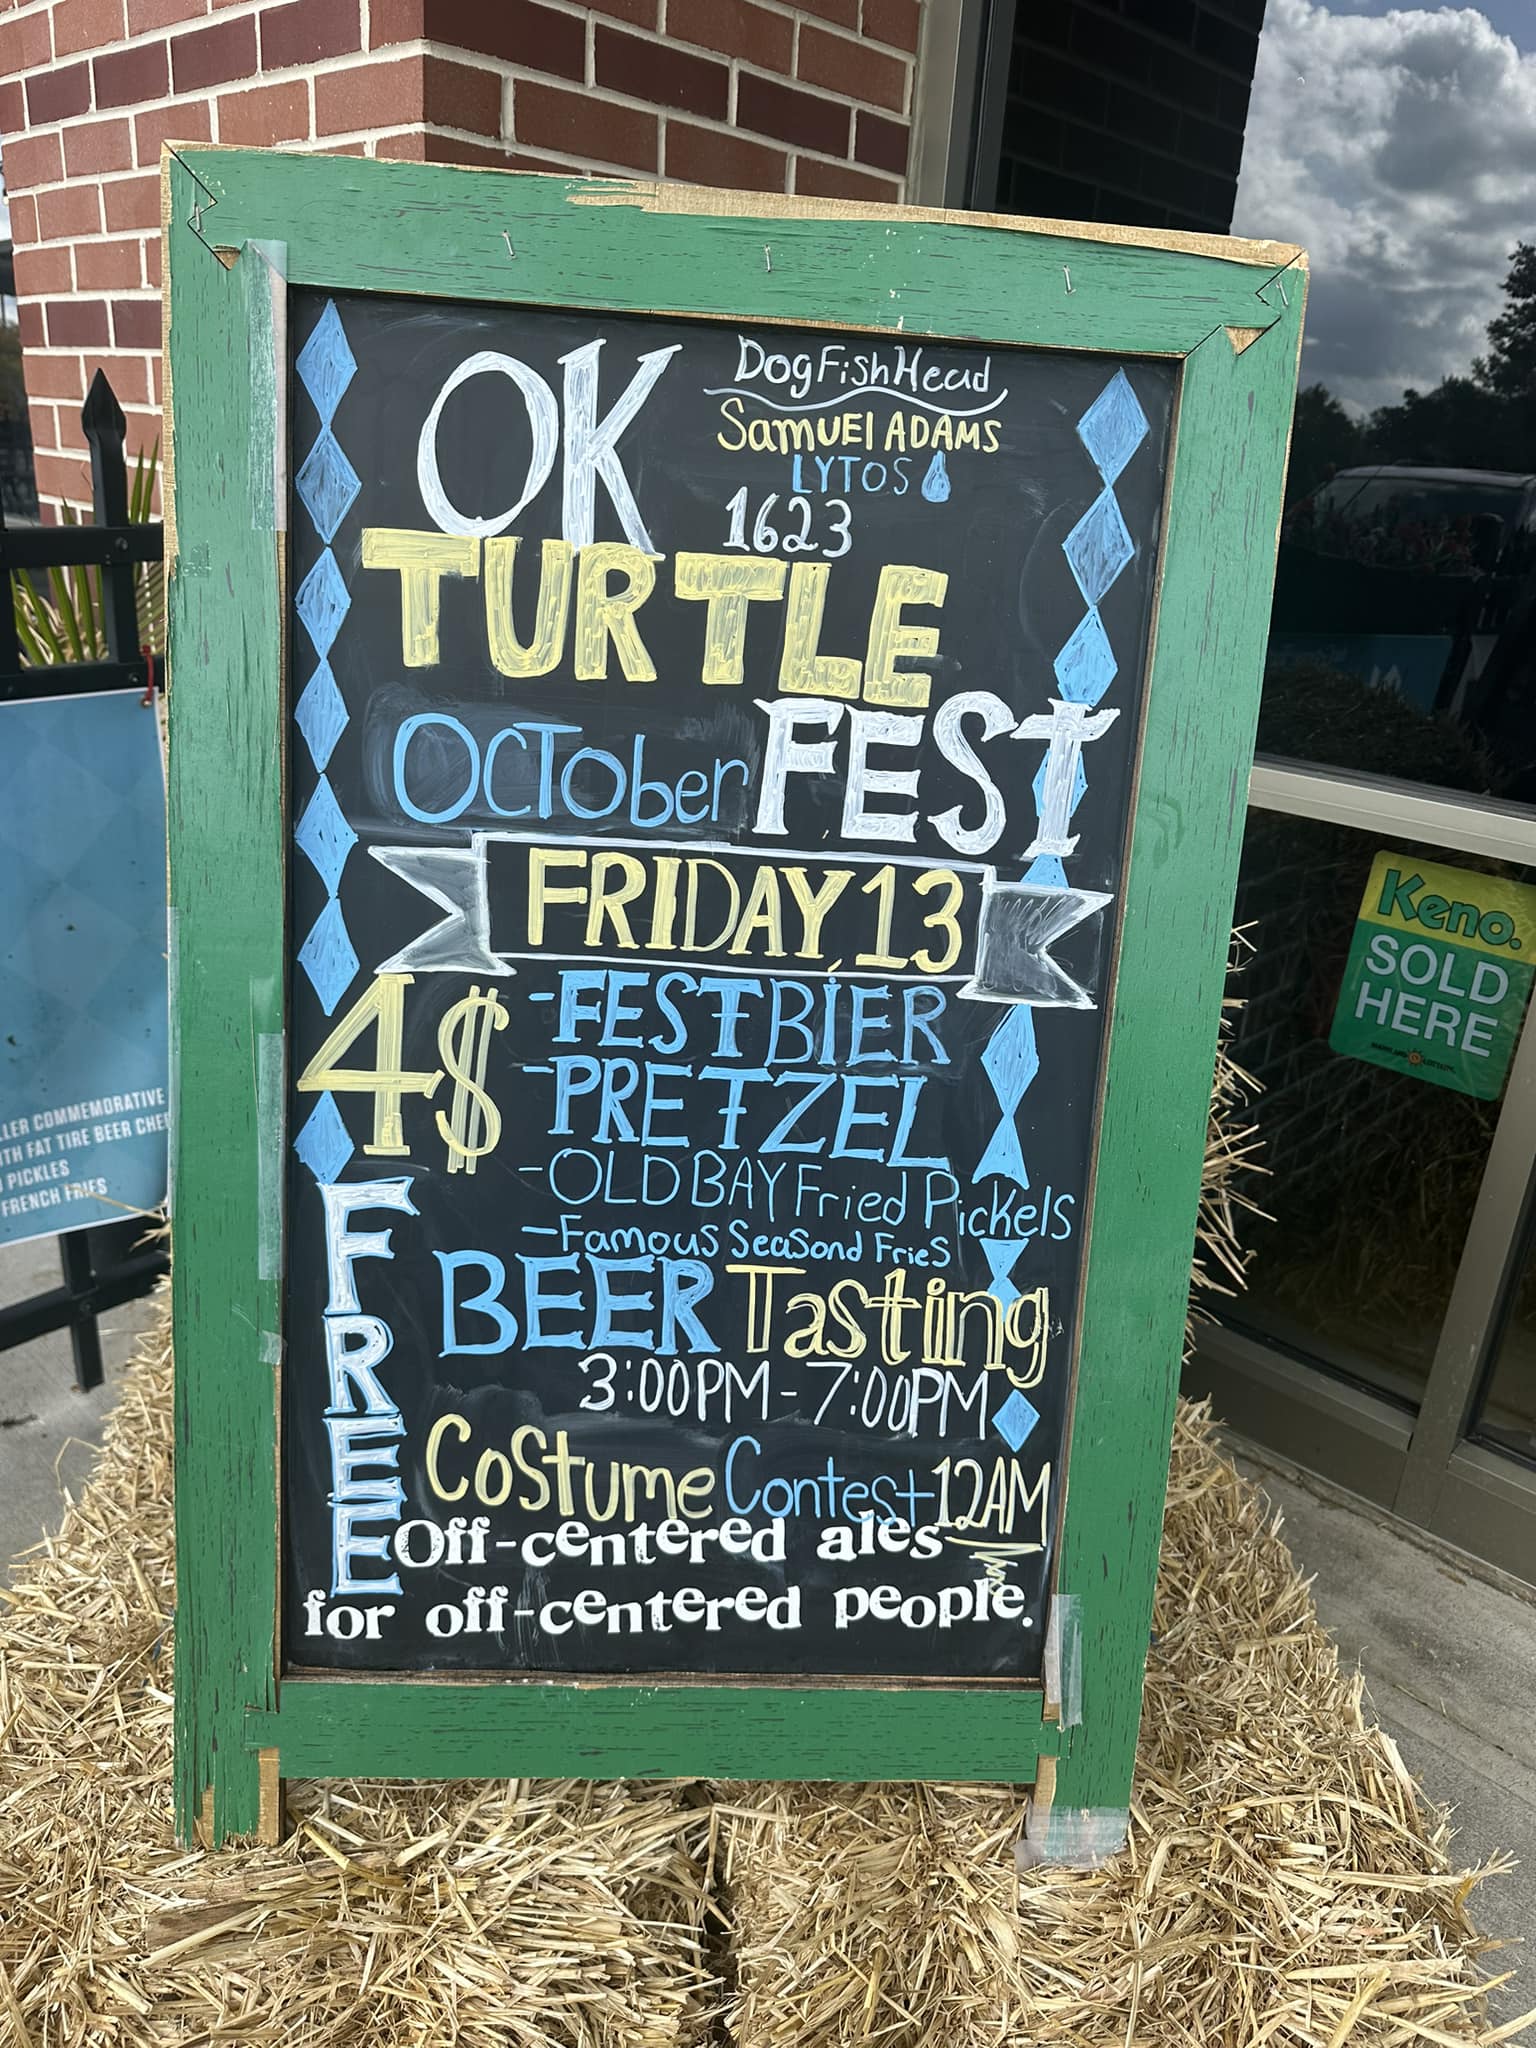 DogFishHead
Samuel ADAMS
LYTOS
1623
OK
TURTLE
OCTober FEST
FRIDAY 13
4$
-FESTBIER
-PRETZEL
-OLD BAY Fried Pickels
-Famous Seasond Fries
FREE
BEER Tasting
3:00PM - 7:00PM
Costume Contest 12AM
Off-centered ales
for off-centered people.
Keno.
SOLD
HERE
LLER COMMEMORATIVE
ITH FAT TIRE BEER CHEE
PICKLES
FRENCH FRIES